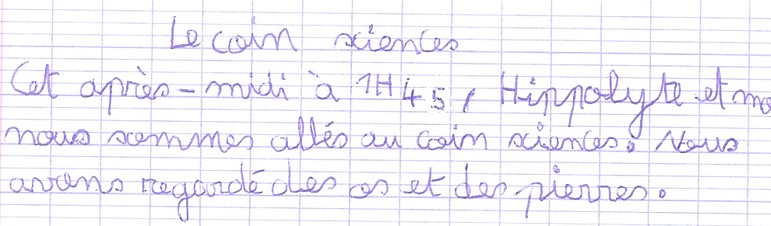 Le coin sciences
Cet après-midi à 1H45, Hippolyte et mo
nous sommes allés au coin sciences. Nous
avons regardé des os et des pierres.